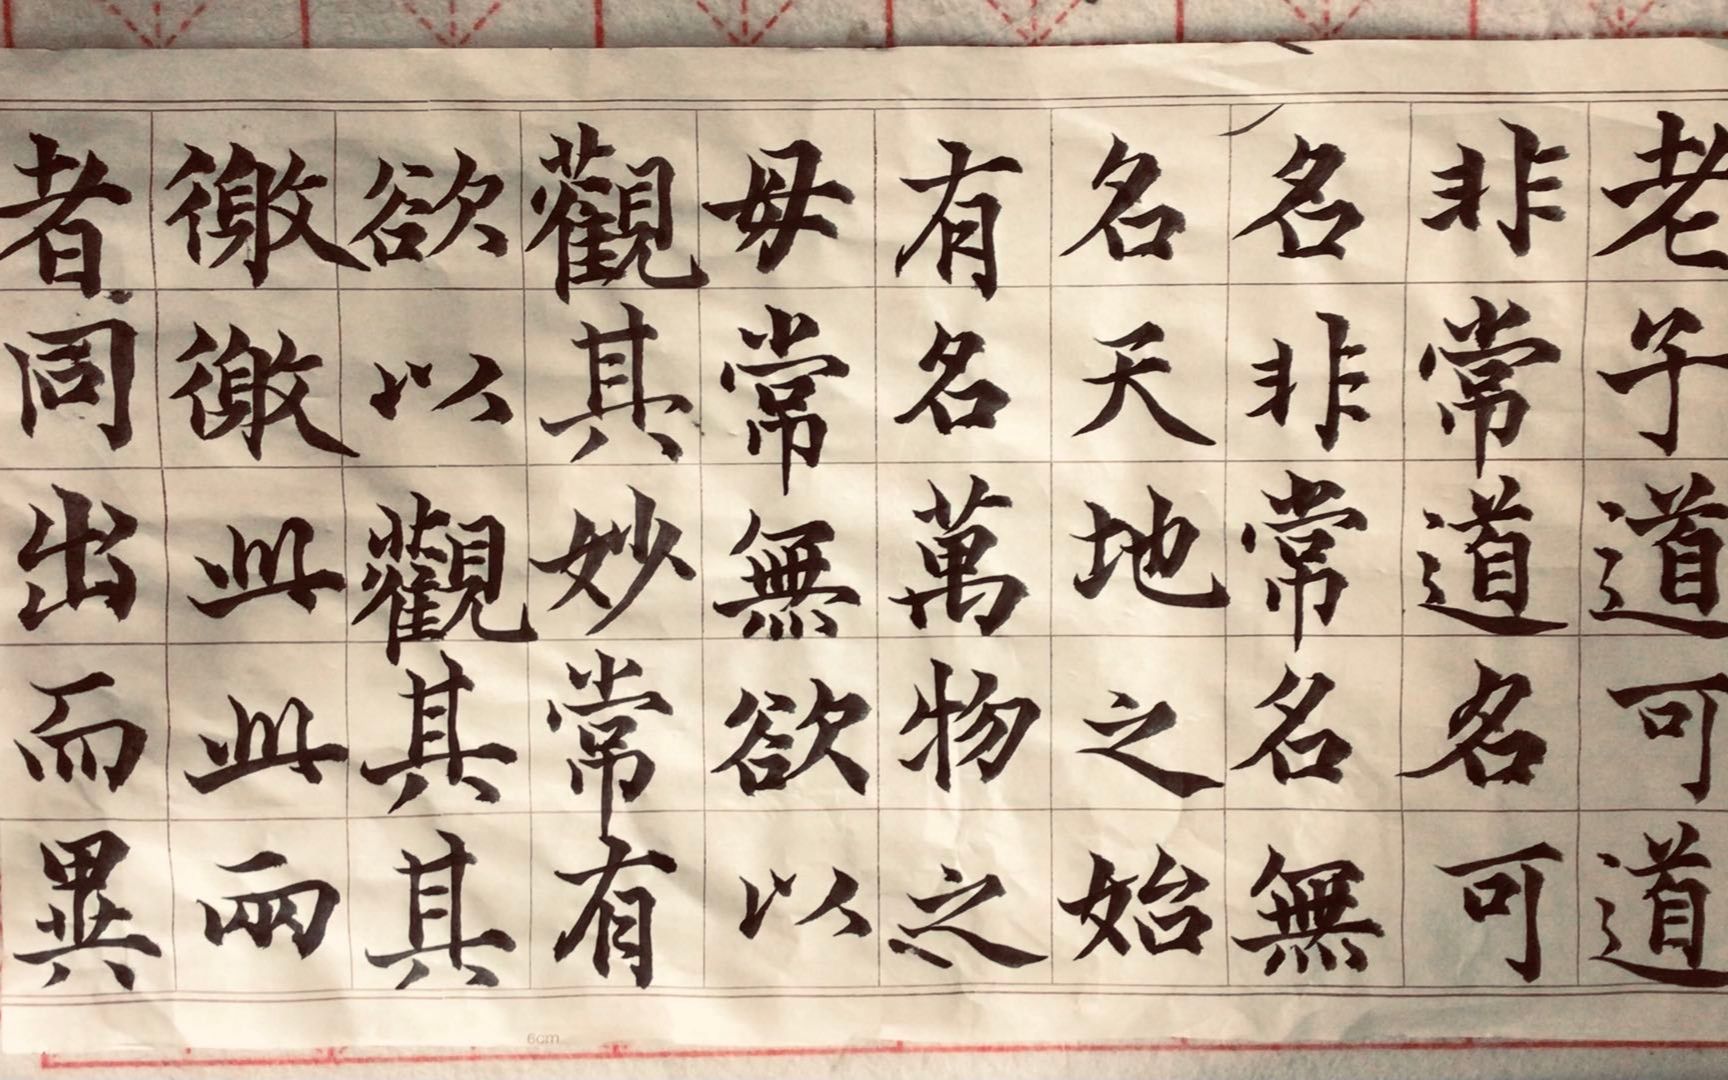 老子道可道
非常道名可
名非常名無
名天地之始
有名萬物之
母常無欲以
觀其妙常有
欲以觀其其
徼徼此此兩
者同出而異
6cm